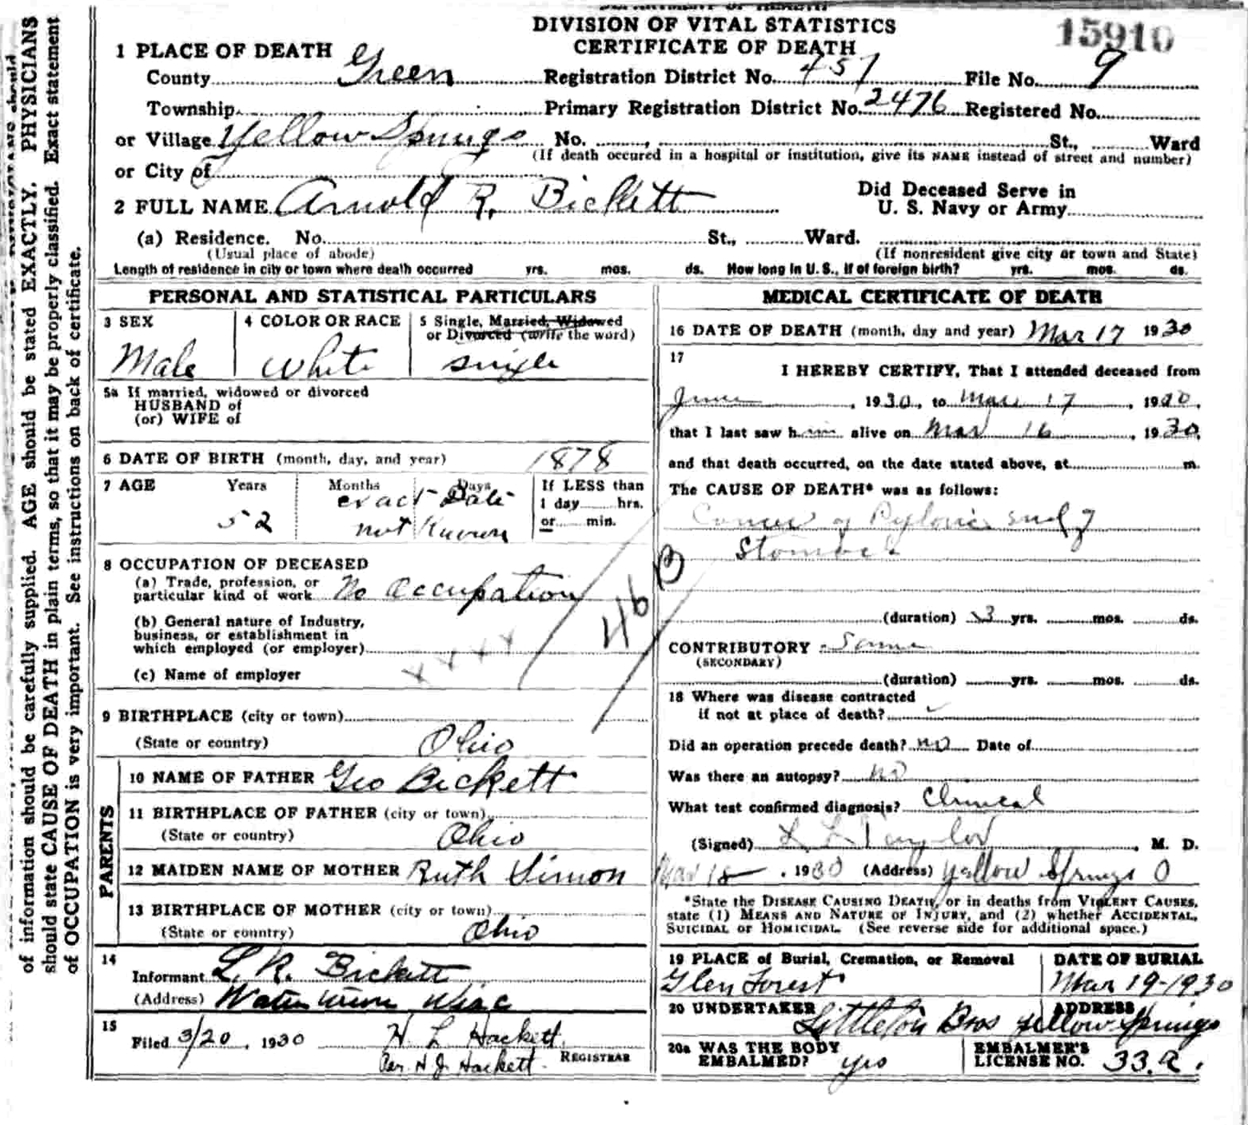 DIVISION OF VITAL STATISTICS
CERTIFICATE OF DEATH
15910
1 PLACE OF DEATH
County Green Registration District No. 457 File No. 9
Township Primary Registration District No. 2476 Registered No.
or Village Yellow Springs No. , St., Ward
(If death occured in a hospital or institution, give its NAME instead of street and number)
or City of
2 FULL NAME Arnold R. Bickett
Did Deceased Serve in
U. S. Navy or Army
(a) Residence. No. St., Ward.
(Usual place of abode) (If nonresident give city or town and State)
Length of residence in city or town where death occurred yrs. mos. ds. How long in U. S., if of foreign birth? yrs. mos. ds.
PERSONAL AND STATISTICAL PARTICULARS
3 SEX 4 COLOR OR RACE 5 Single, Married, Widowed
or Divorced (write the word)
Male White single
5a If married, widowed or divorced
HUSBAND of
(or) WIFE of
6 DATE OF BIRTH (month, day, and year) 1878
7 AGE Years Months Days If LESS than
1 day hrs.
or min.
52 exact Date
not Known
8 OCCUPATION OF DECEASED
(a) Trade, profession, or
particular kind of work No Occupation
(b) General nature of Industry,
business, or establishment in
which employed (or employer)
(c) Name of employer
46 B
9 BIRTHPLACE (city or town)
(State or country) Ohio
PARENTS
10 NAME OF FATHER Geo Bickett
11 BIRTHPLACE OF FATHER (city or town)
(State or country) Ohio
12 MAIDEN NAME OF MOTHER Ruth Simon
13 BIRTHPLACE OF MOTHER (city or town)
(State or country) Ohio
14
Informant L. R. Bickett
(Address) Watertown Wisc
15
Filed 3/20, 1930 H. L. Hackett
Per H J Hackett. REGISTRAR
MEDICAL CERTIFICATE OF DEATH
16 DATE OF DEATH (month, day and year) Mar 17 1930
17
I HEREBY CERTIFY, That I attended deceased from
June, 1930, to Mar 17, 1930,
that I last saw him alive on Mar 16, 1930,
and that death occurred, on the date stated above, at m.
The CAUSE OF DEATH* was as follows:
Cancer of Pyloric end of
Stomach
(duration) 3 yrs. mos. ds.
CONTRIBUTORY Same
(SECONDARY)
(duration) yrs. mos. ds.
18 Where was disease contracted
if not at place of death?
Did an operation precede death? no Date of
Was there an autopsy? no
What test confirmed diagnosis? Clinical
(Signed) L L Taylor, M. D.
Mar 18, 1930 (Address) Yellow Springs O
*State the DISEASE CAUSING DEATH, or in deaths from VIOLENT CAUSES,
state (1) MEANS AND NATURE OF INJURY, and (2) whether ACCIDENTAL,
SUICIDAL or HOMICIDAL. (See reverse side for additional space.)
19 PLACE of Burial, Cremation, or Removal DATE OF BURIAL
Glen Forest Mar 19-1930
20 UNDERTAKER ADDRESS
Littleton Bros Yellow Springs
20a WAS THE BODY
EMBALMED? yes
EMBALMER'S
LICENSE NO. 33.A.
of information should be carefully supplied. AGE should be stated EXACTLY. PHYSICIANS
should state CAUSE OF DEATH in plain terms, so that it may be properly classified. Exact statement
of OCCUPATION is very important. See instructions on back of certificate.